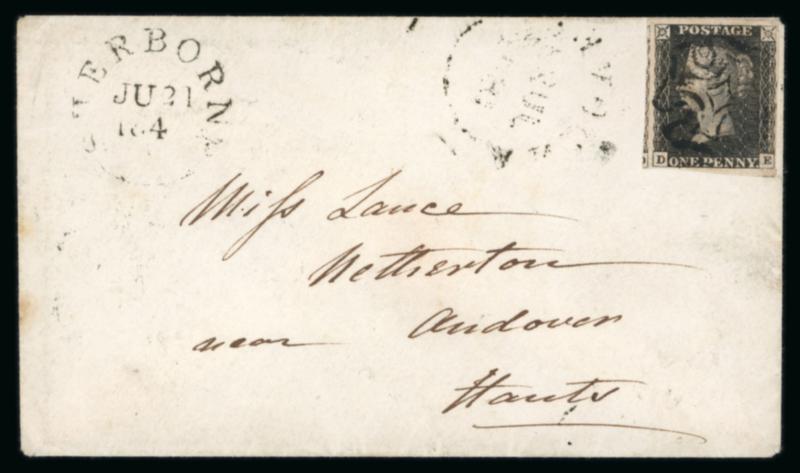 SHERBORNE
JU 21
184
POSTAGE
D ONE PENNY. E
Miss Lance
Netherton
near Andover
Hants